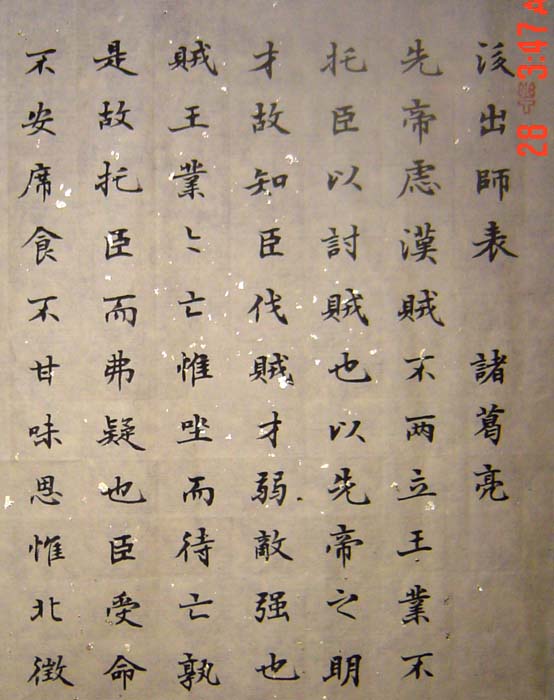 後出師表 諸葛亮
先帝虑漢賊不两立王業不
托臣以討賊也以先帝之明
才故知臣伐賊才弱敵强也
賊王業〻亡惟坐而待亡孰
是故托臣而弗疑也臣受命
不安席食不甘味思惟北徵
28 3:47